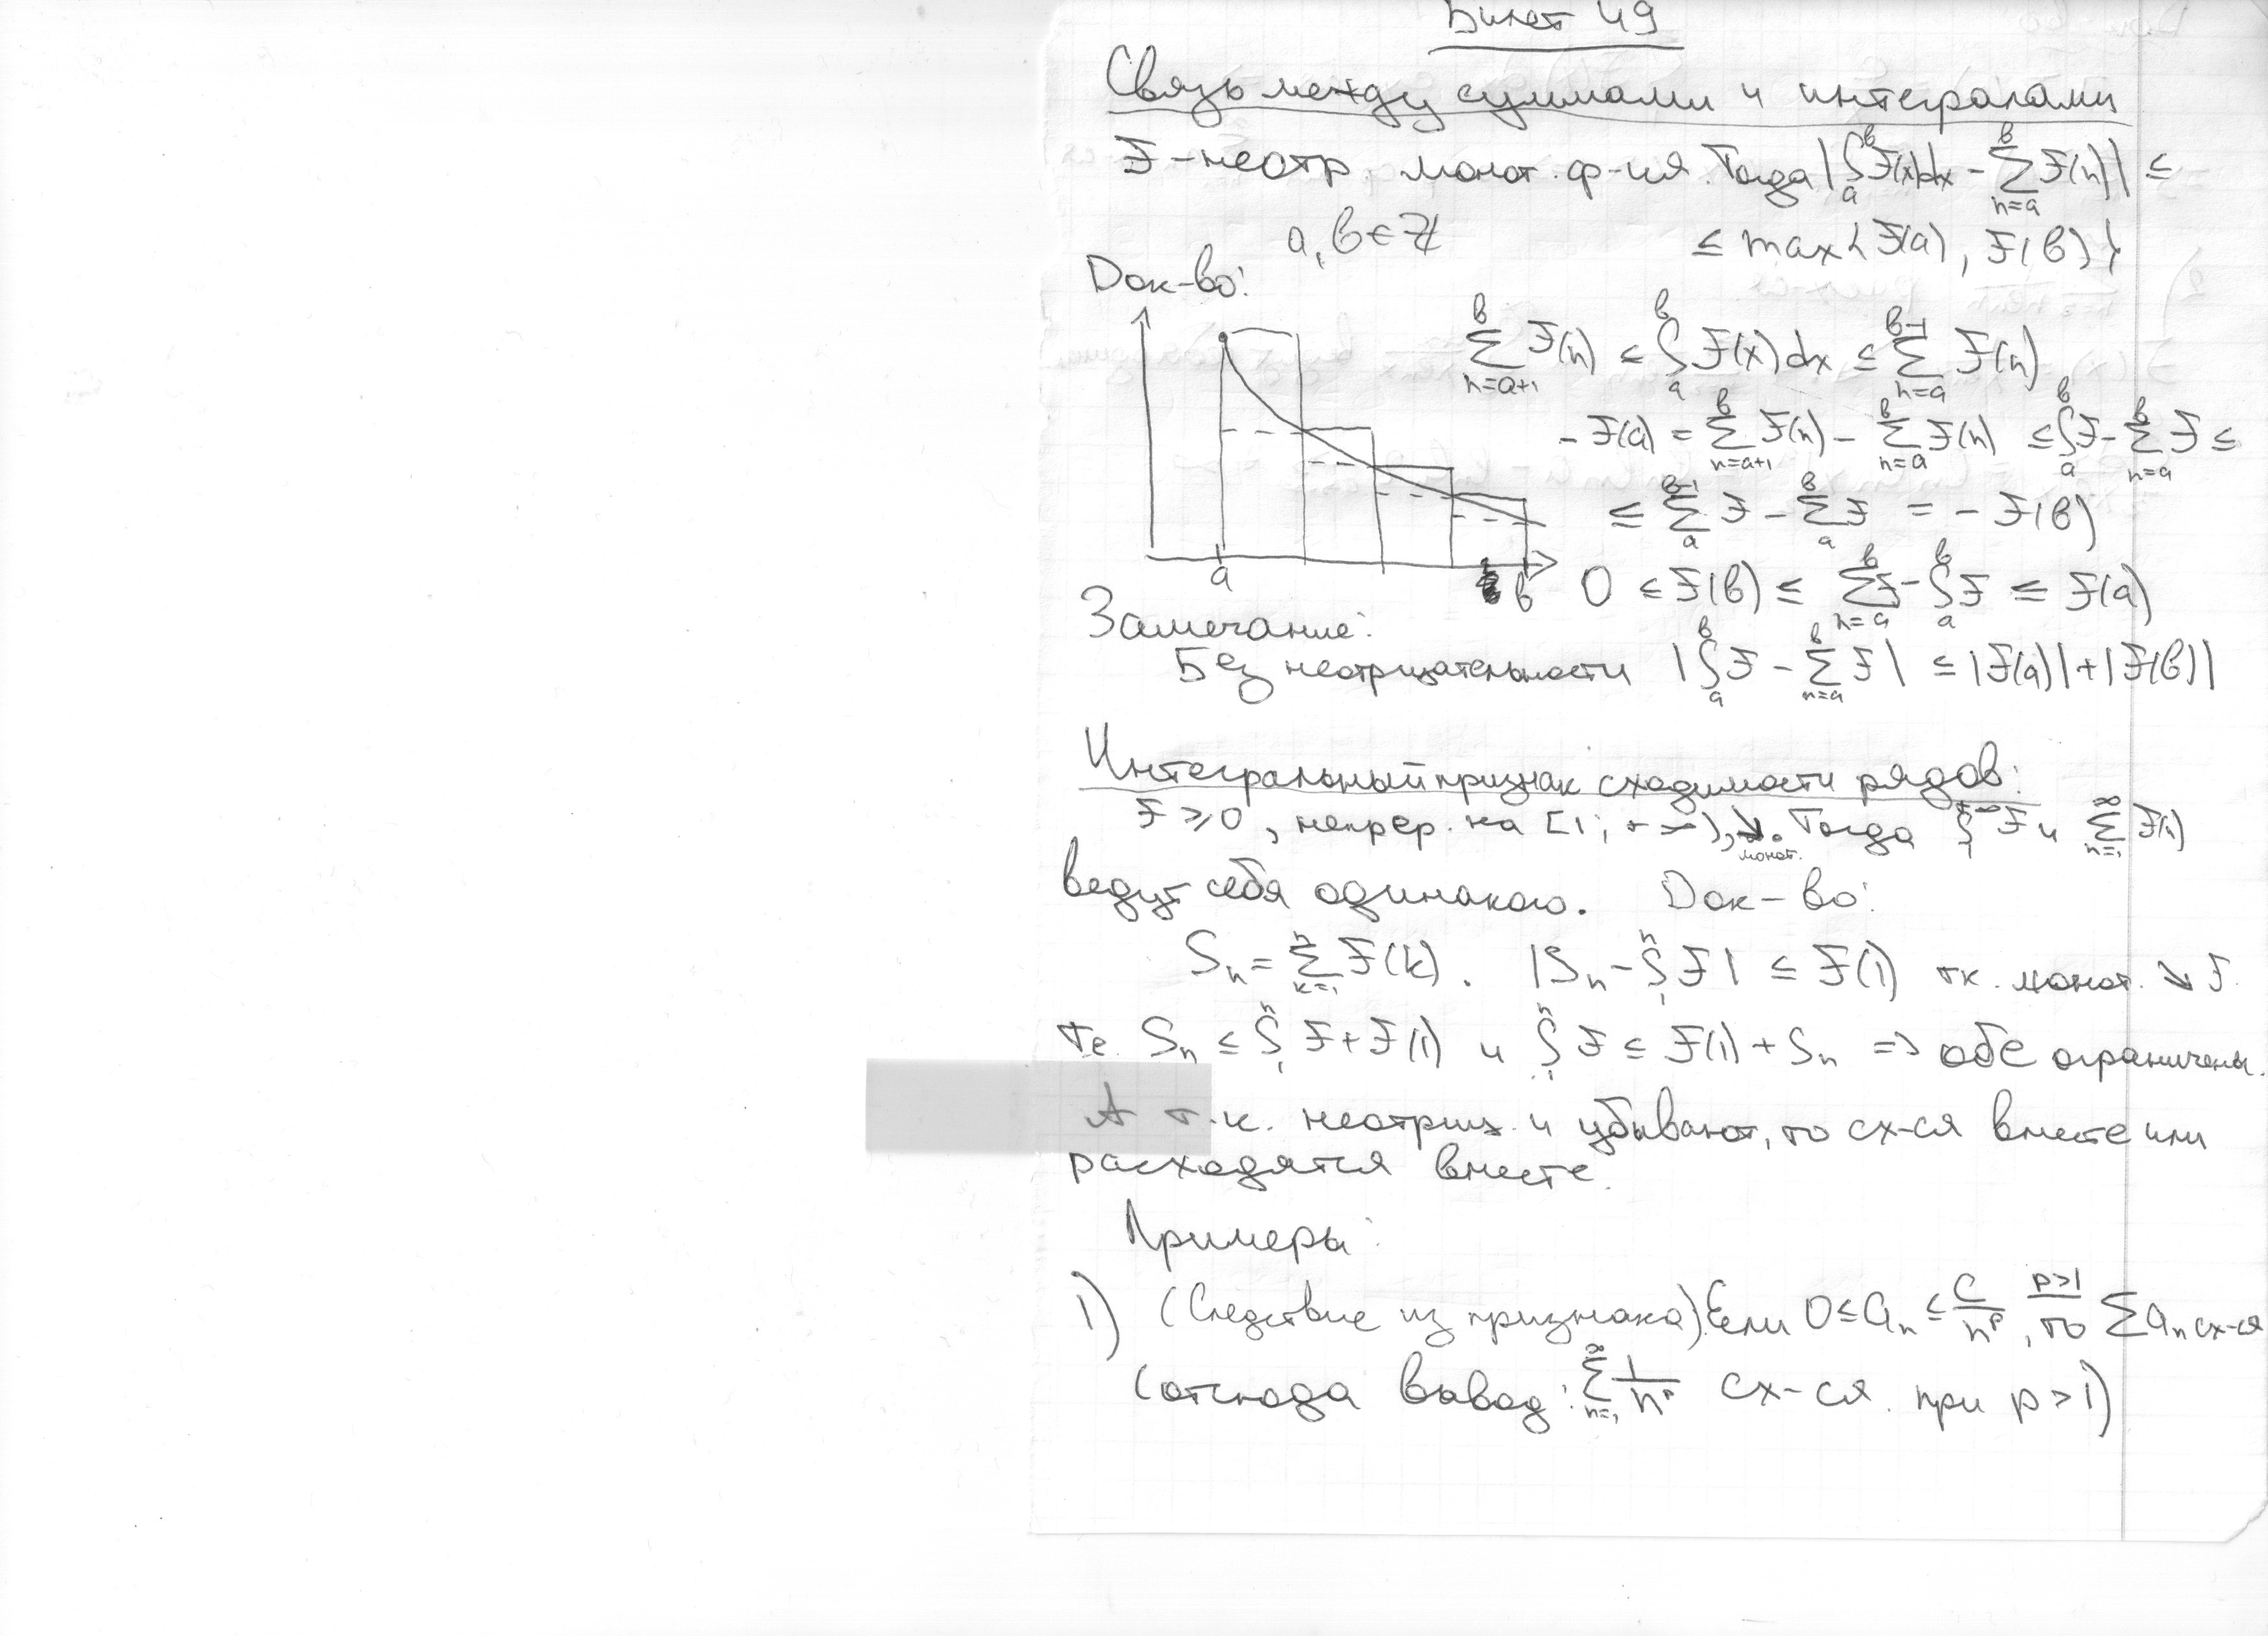 Билет 49
Связь между суммами и интегралами
F - неотр монот. ф-ия. Тогда |∫_a^b F(x)dx - ∑_{n=a}^b F(n)| ≤
a, b ∈ ℤ ≤ max{F(a), F(b)}
Док-во:
∑_{n=a+1}^b F(n) ≤ ∫_a^b F(x)dx ≤ ∑_{n=a}^{b-1} F(n)
- F(a) = ∑_{n=a+1}^b F(n) - ∑_{n=a}^b F(n) ≤ ∫_a^b F - ∑_{n=a}^b F ≤
≤ ∑_a^{b-1} F - ∑_a^b F = - F(b)
a b 0 ≤ F(b) ≤ ∑_{n=a}^b F - ∫_a^b F ≤ F(a)
Замечание:
Без неотрицательности |∫_a^b F - ∑_{n=a}^b F| ≤ |F(a)| + |F(b)|
Интегральный признак сходимости рядов:
F ≥ 0, непрер. на [1; +∞), ↘ монот. Тогда ∫_1^{+∞} F и ∑_{n=1}^∞ F(n)
ведут себя одинаково. Док-во:
S_n = ∑_{k=1}^n F(k). |S_n - ∫_1^n F| ≤ F(1) тк. монот. ↘ F.
Те. S_n ≤ ∫_1^n F + F(1) и ∫_1^n F ≤ F(1) + S_n => обе ограничены.
А т.к. неотриц. и убывают, то сх-ся вместе или
расходятся вместе.
Примеры:
1) (Следствие из признака). Если 0 ≤ a_n ≤ C/n^p, p>1, то ∑ a_n сх-ся
(отсюда вывод: ∑_{n=1}^∞ 1/n^p сх-ся при p > 1)